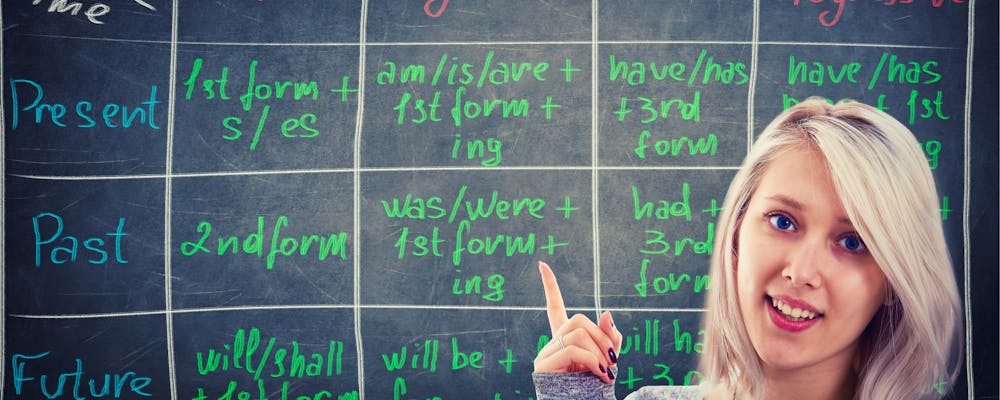 Present
1st form +
s/es
am/is/are +
1st form +
ing
have/has
+3rd
form
have/has
+ 1st
Past
2nd form
was/were +
1st form +
ing
had +
3rd
form
Future
will/shall
+1st form
will be +
will
+3